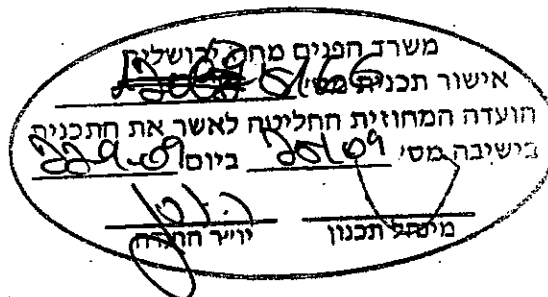 משרד הפנים מחוז ירושלים
אישור תכנית מס'
הועדה המחוזית החליטה לאשר את התכנית
בישיבה מס' ביום 22-9-09
מינהל תכנון יו"ר הועדה